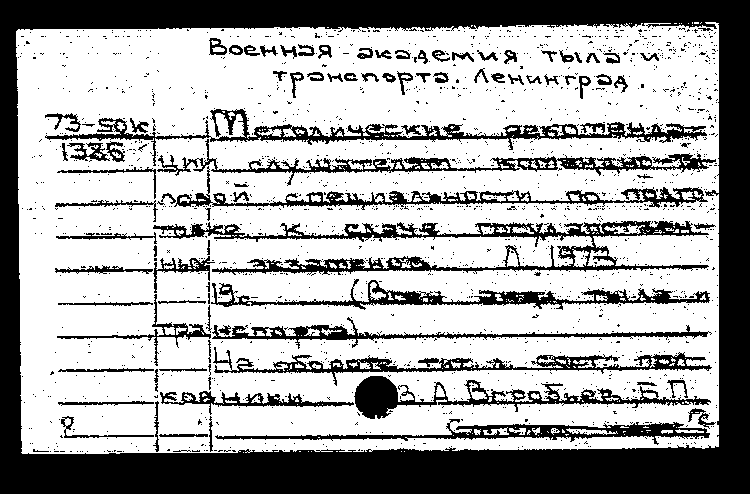 Военная академия тыла и
транспорта. Ленинград.
73-50к Методические рекоменда-
1386 ции слушателям командно-ты
ловой специальности по подго-
товке к сдаче государствен-
ных экзаменов Л 1973
19с. (Воен акад. тыла и
транспорта)
На обороте тит л. сост: пол-
ковники В.А Воробьев, Б.П.